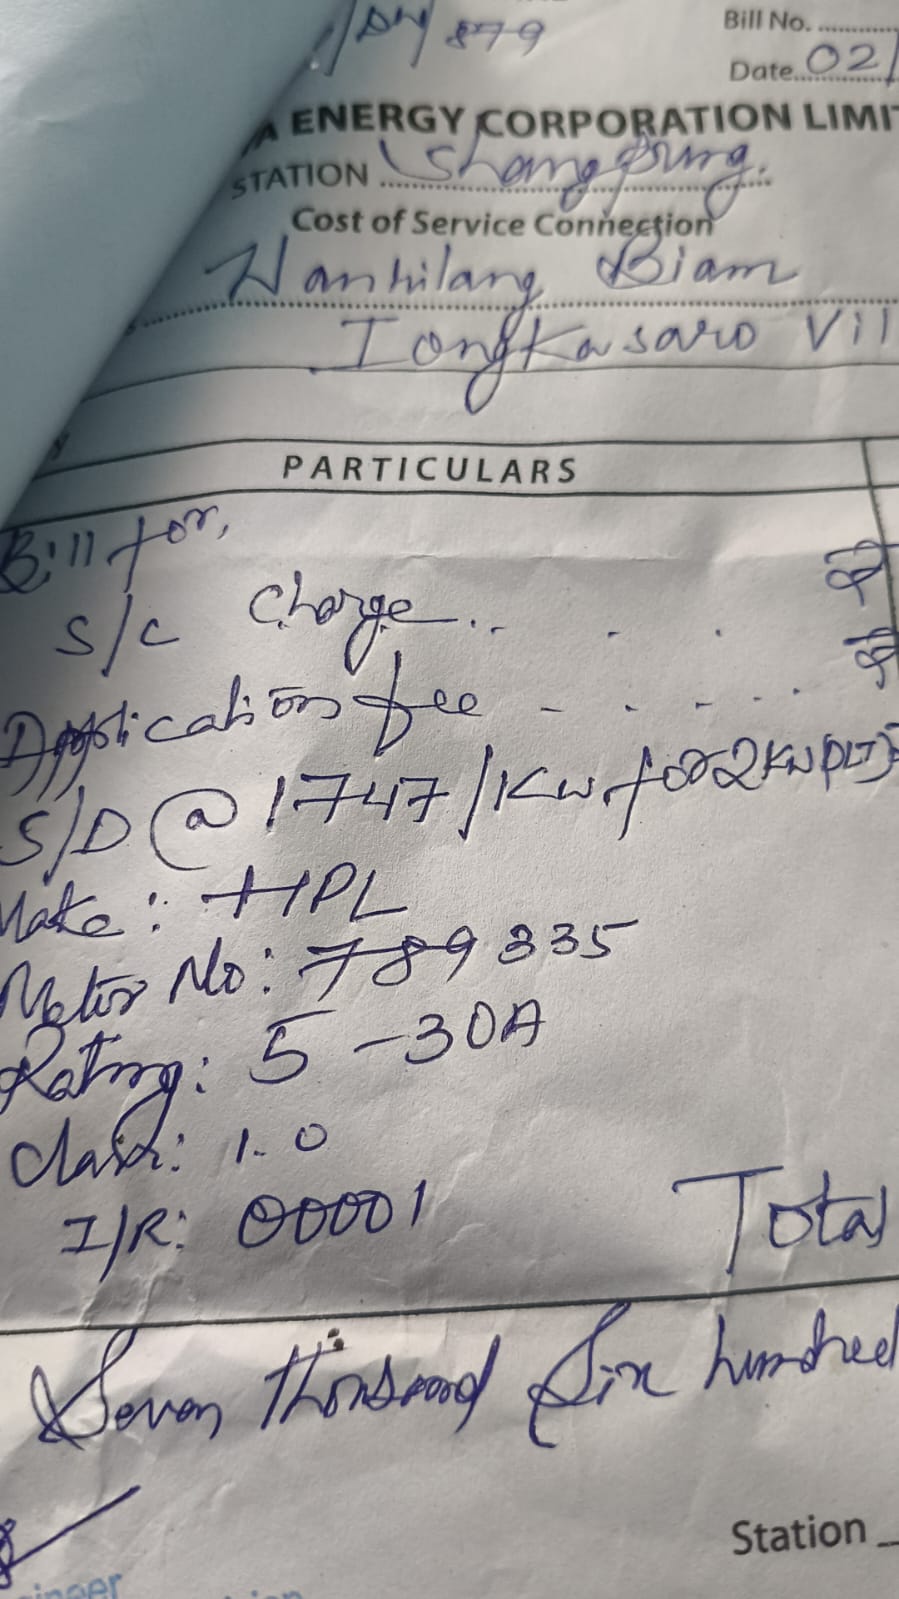 879
Bill No.
Date 02/
ENERGY CORPORATION LIMI
STATION Shangpung.
Cost of Service Connection
Wanhilang Biam
Iongkasaro Vill
PARTICULARS
Bill for,
S/C Charge..
Application fee
S/D @ 1747/KW for 2KW (DLT)
Make: HPL
Meter No: 789335
Rating: 5-30A
Class: 1.0
I/R: 00001
Total
Seven thousand Six hundred
Station